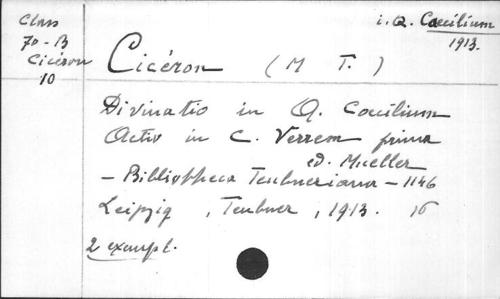 Class
70 - B
Cicéron
10
i. Q. Caecilium
1913.
Cicéron (M T.)
Divinatio in Q. Caecilium
Actio in C. Verrem prima
ed. Mueller
- Bibliotheca Teubneriana - 1146
Leipzig, Teubner, 1913. 16
2 exempl.